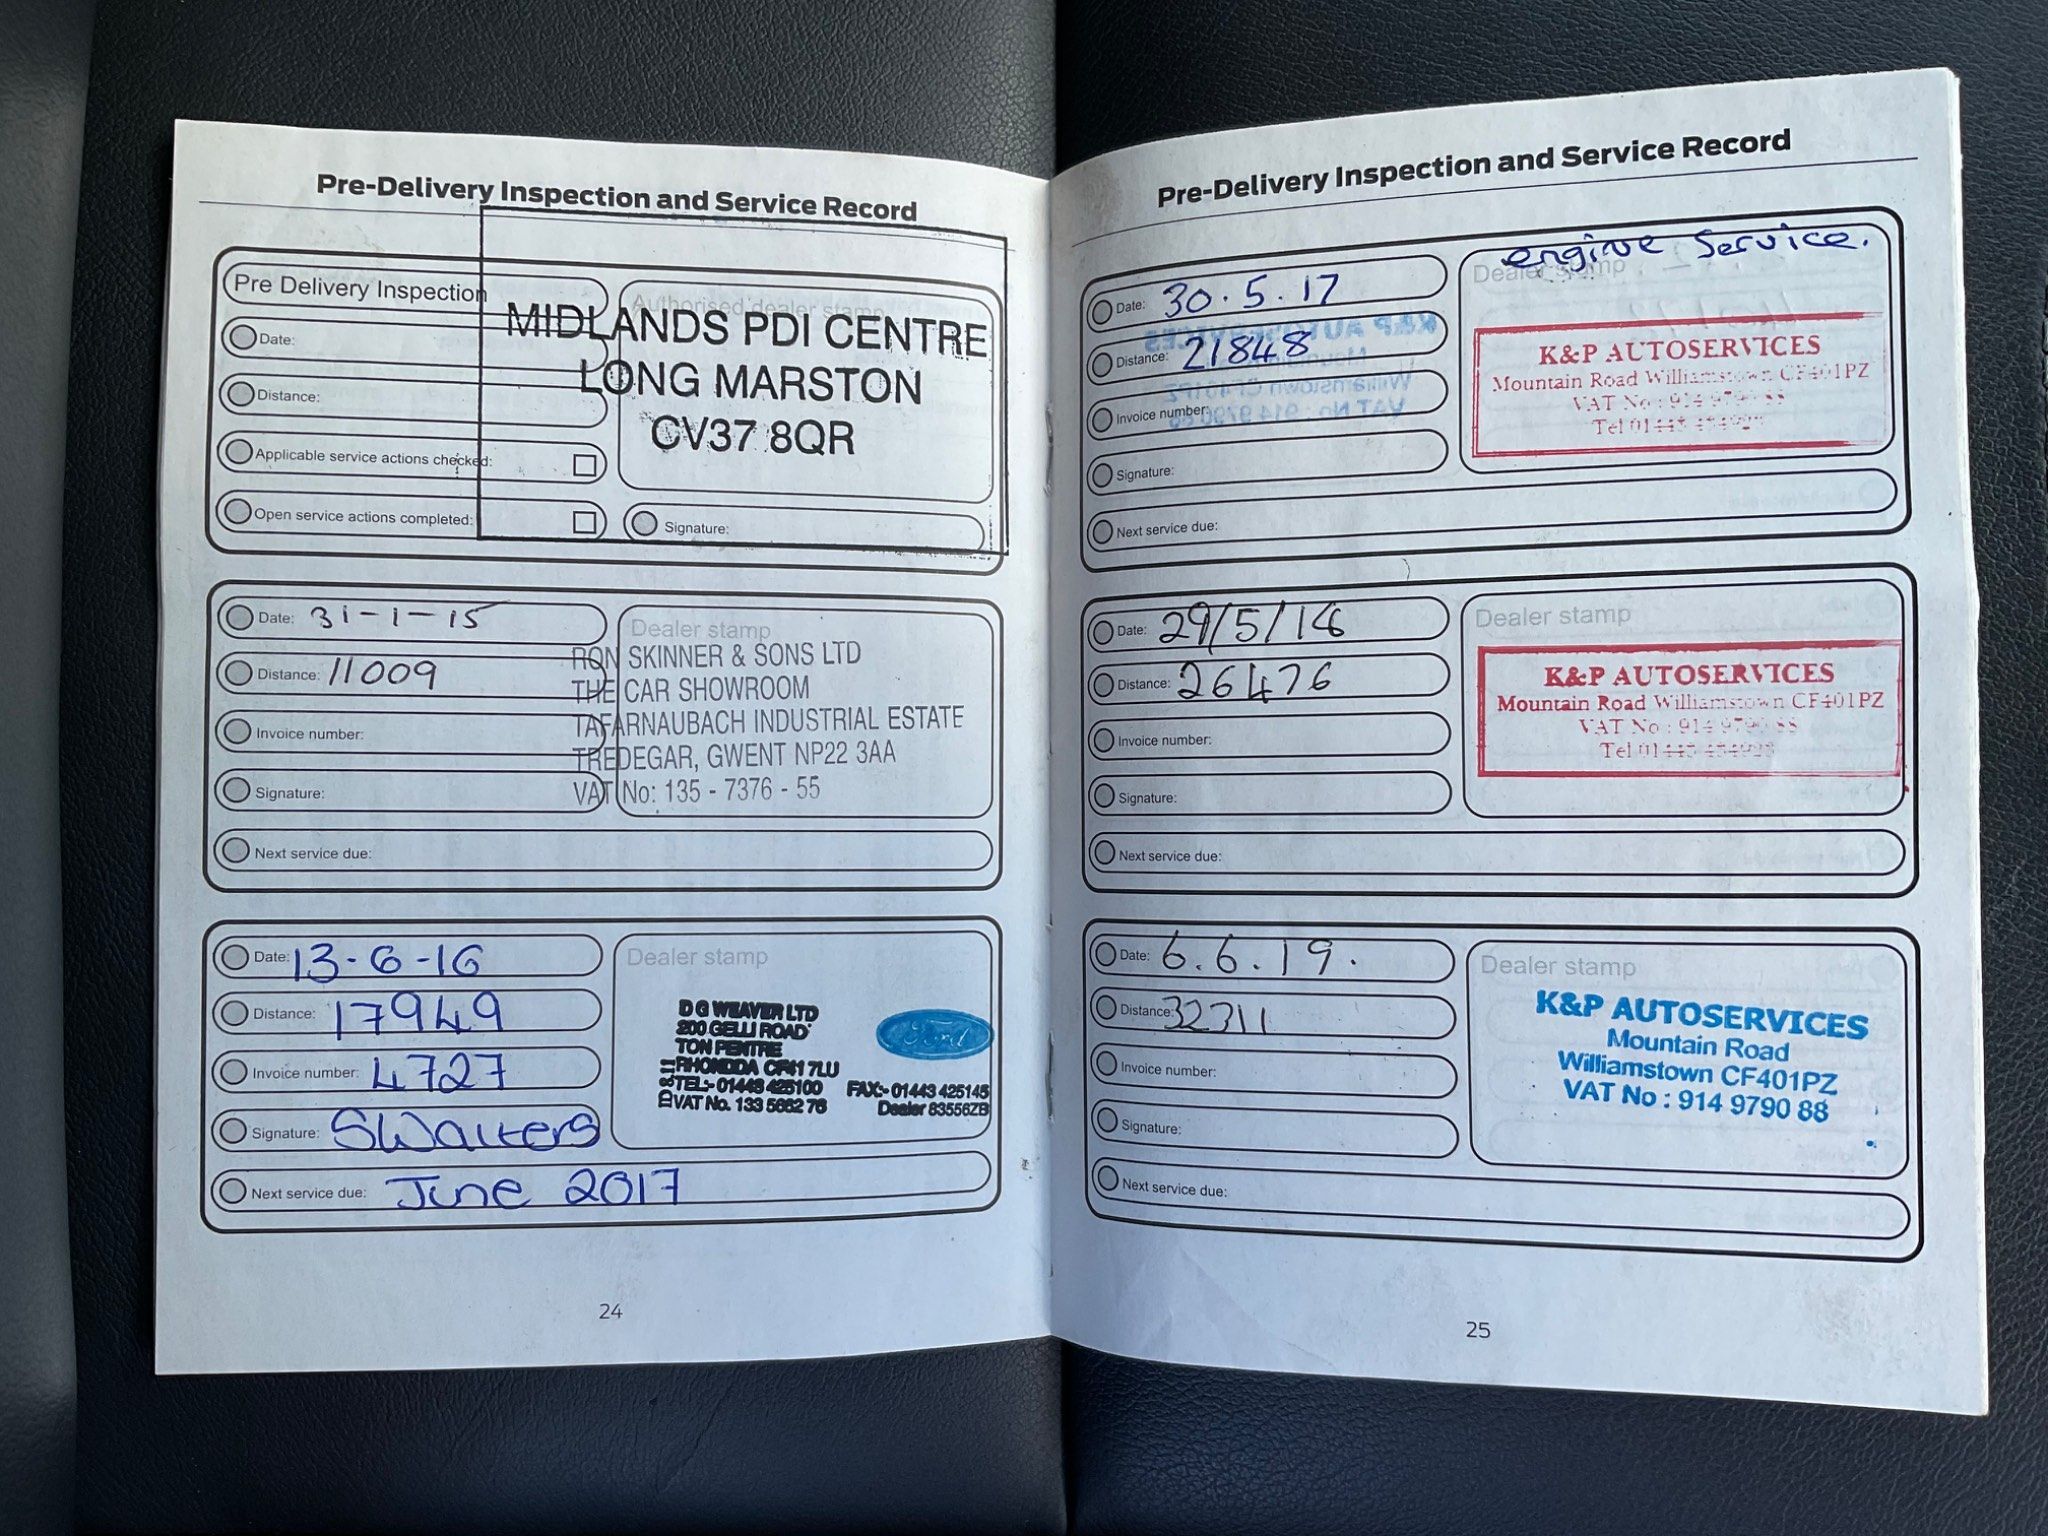 Pre-Delivery Inspection and Service Record
Pre Delivery Inspection
Authorised dealer stamp
MIDLANDS PDI CENTRE
LONG MARSTON
CV37 8QR
Date:
Distance:
Applicable service actions checked:
Open service actions completed:
Signature:
Date: 31-1-15
Distance: 11009
Invoice number:
Signature:
Dealer stamp
RON SKINNER & SONS LTD
THE CAR SHOWROOM
TAFARNAUBACH INDUSTRIAL ESTATE
TREDEGAR, GWENT NP22 3AA
VAT No: 135 - 7376 - 55
Next service due:
Date: 13-6-16
Distance: 17949
Invoice number: 4727
Signature: SWalters
Dealer stamp
D G WEAVER LTD
200 GELLI ROAD
TON PENTRE
RHONDDA CF41 7LU
TEL:- 01443 425100 FAX:- 01443 425145
VAT No. 133 5662 76 Dealer 83556ZB
Ford
Next service due: June 2017
24
Pre-Delivery Inspection and Service Record
Date: 30.5.17
Distance: 21848
Invoice number:
Signature:
engine Service.
Dealer stamp
K&P AUTOSERVICES
Mountain Road Williamstown CF401PZ
VAT No : 914 9790 88
Tel 01443
Next service due:
Date: 29/5/18
Distance: 26476
Invoice number:
Signature:
Dealer stamp
K&P AUTOSERVICES
Mountain Road Williamstown CF401PZ
VAT No : 914 9790 88
Tel 01443
Next service due:
Date: 6.6.19.
Distance: 32311
Invoice number:
Signature:
Dealer stamp
K&P AUTOSERVICES
Mountain Road
Williamstown CF401PZ
VAT No : 914 9790 88
Next service due:
25